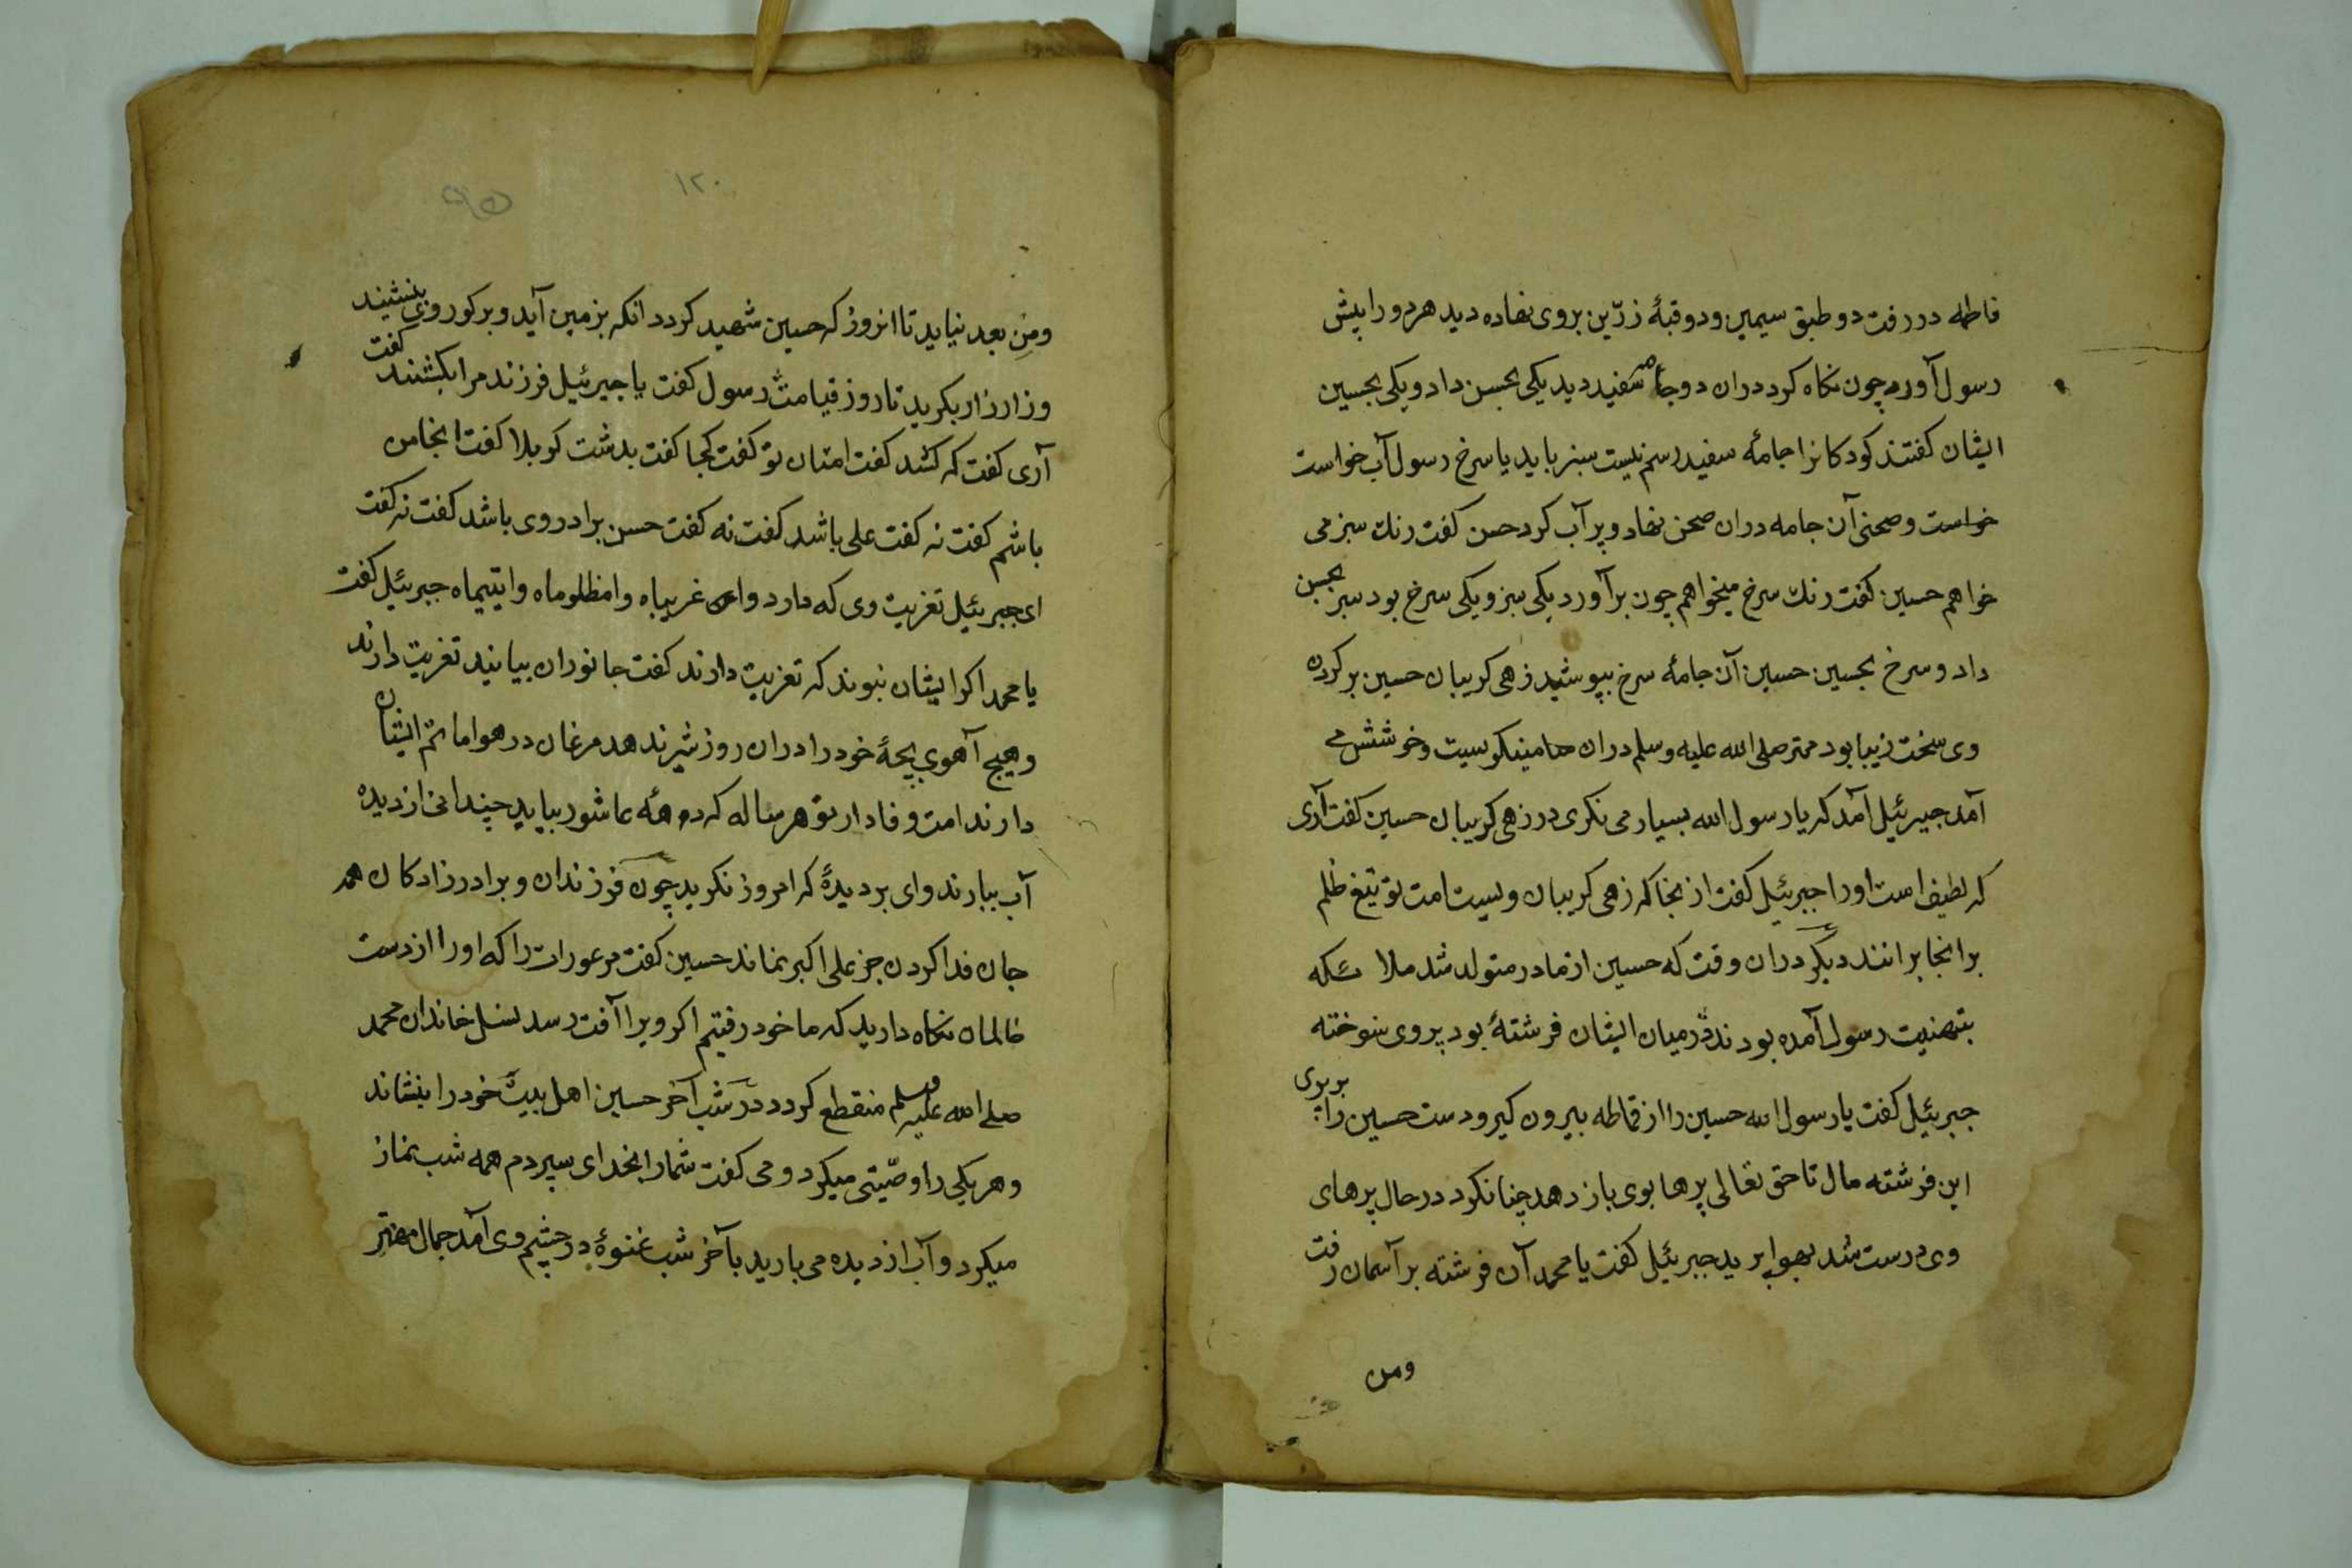 فاطمه در رفت دو طبق سیمین و دو قبهٔ زرّین بروی نهاده دید هر دو را پیش
رسول آورد چون نکاه کرد دران دو جامه سفید دید یکی بحسن داد و یکی بحسین
ایشان کفتند کودکانرا جامهٔ سفید رسم نیست سبز باید یا سرخ رسول آب خواست
خواست و صحنی آن جامه دران صحن نهاد و پر آب کرد حسن کفت رنك سبز می
خواهم حسین کفت رنك سرخ میخواهم چون برآورد یکی سبز و یکی سرخ بود سبز بحسن
داد و سرخ بحسین حسین آن جامهٔ سرخ بپوشید زهی کریبان حسین بر کردن
وی سخت زیبا بود مهتر صلی الله علیه وسلم دران مینکریست و خوشش می
آمد جبرئیل آمد که یا رسول الله بسیار می نکری در زهی کریبان حسین کفت آری
که لطیف است او را جبرئیل کفت از بجا که زهی کریبان ویست امت تو تیغ ظلم
برانجا برانند دیکر دران وقت که حسین از مادر متولد شد ملائکه
بتهنیت رسول آمده بودند در میان ایشان فرشتهٔ بود پروی سوخته
جبرئیل کفت یا رسول الله حسین را از قماطه بیرون کیر و دست حسین را بر بروی
این فرشته مال تا حق تعالی پرها بوی باز دهد چنانکرد در حال پرهای
وی درست شد بهوا برید جبرئیل کفت یا محمد آن فرشته بر آسمان رفت
ومن
۱۲۰
ومن بعد نیاید تا انروز که حسین شهید کردد انکه بزمین آید و بر کور وی بنشیند
و زار زار بکرید تا روز قیامت رسول کفت یا جبرئیل فرزند مرا بکشند کفت
آری کفت که کشد کفت امتان تو کفت کجا کفت بدشت کربلا کفت انجا من
باشم کفت نه کفت علی باشد کفت نه کفت حسن برادر وی باشد کفت نه کفت
ای جبرئیل تعزیت وی که دارد وا غریباه وا مظلوماه وا یتیماه جبرئیل کفت
یا محمد اکر ایشان نبوند که تعزیت دارند کفت جانوران بیایند تعزیت دارند
و هیچ آهوی بچهٔ خود را دران روز شیر ندهد مرغان در هوا ماتم ایشان
دارند امت وفادار تو هر ساله که دهه عاشور بیاید چندانی از دیده
آب ببارند وای بر دیدهٔ که امروز نکرید چون فرزندان و برادرزادکان همه
جان فدا کردن جز علی اکبر نماند حسین کفت مر عورات را که او را از دست
ظالمان نکاه دارید که ما خود رفتیم اکر ویرا آفت رسد نسل خاندان محمد
صلی الله علیه وسلم منقطع کردد در شب آخر حسین اهل بیت خود را بنشاند
و هر یکی را وصّیتی میکرد و می کفت شما را بخدای سپردم همه شب نماز
میکرد و آب از دیده می بارید بآخر شب غنوهٔ در چشم وی آمد جمال مهتر